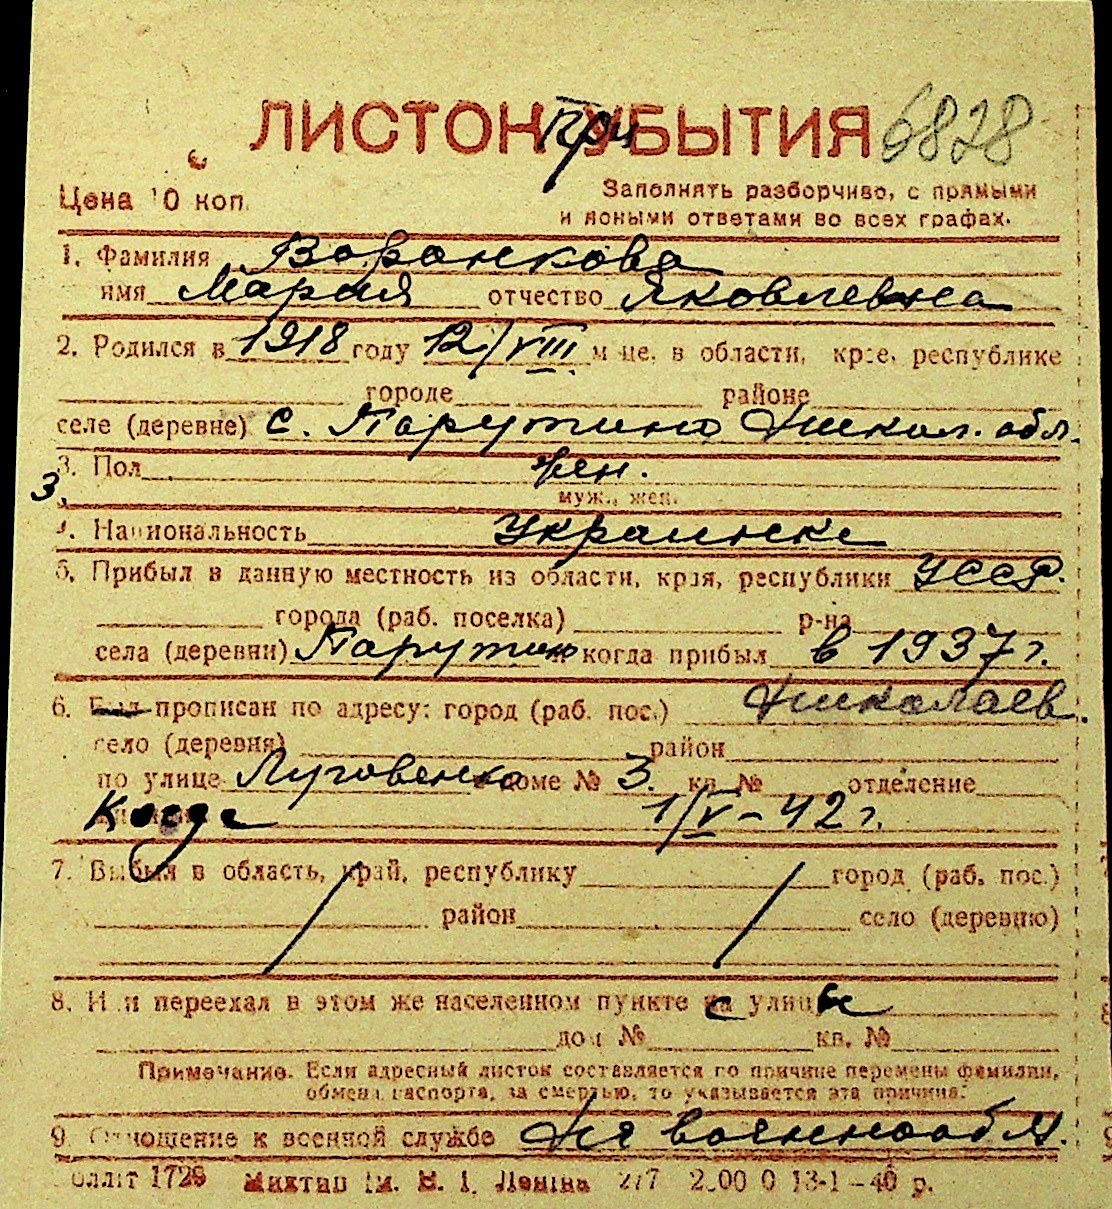 ЛИСТОК при УБЫТИЯ 6828
Цена 10 коп.
Заполнять разборчиво, с прямыми
и ясными ответами во всех графах.
1. Фамилия Воранкова
имя Мария отчество Яковлевна
2. Родился в 1918 году 12/VIII м-це, в области, крае, республике
городе районе
селе (деревне) с. Парутино Никол. обл.
3. Пол жен.
муж., жен.
3.
4. Национальность Украинка
5. Прибыл в данную местность из области, края, республики УССР.
города (раб. поселка) р-на
села (деревни) Парутино когда прибыл в 1937 г.
6. Был прописан по адресу: город (раб. пос.) Николаев.
село (деревня) район
по улице Луговенко доме № 3. кв. № отделение
Когда 1/V-42 г.
7. Выбыл в область, край, республику город (раб. пос.)
район село (деревню)
8. Или переехал в этом же населенном пункте с улицы
дом № кв. №
Примечание. Если адресный листок составляется по причине перемены фамилии,
обмена паспорта, за смертью, то указывается эта причина.
9. Отношение к военной службе Не военнообяз.
1729 Миктип ім. В. І. Леніна 277 2.00 0 13-1-40 р.